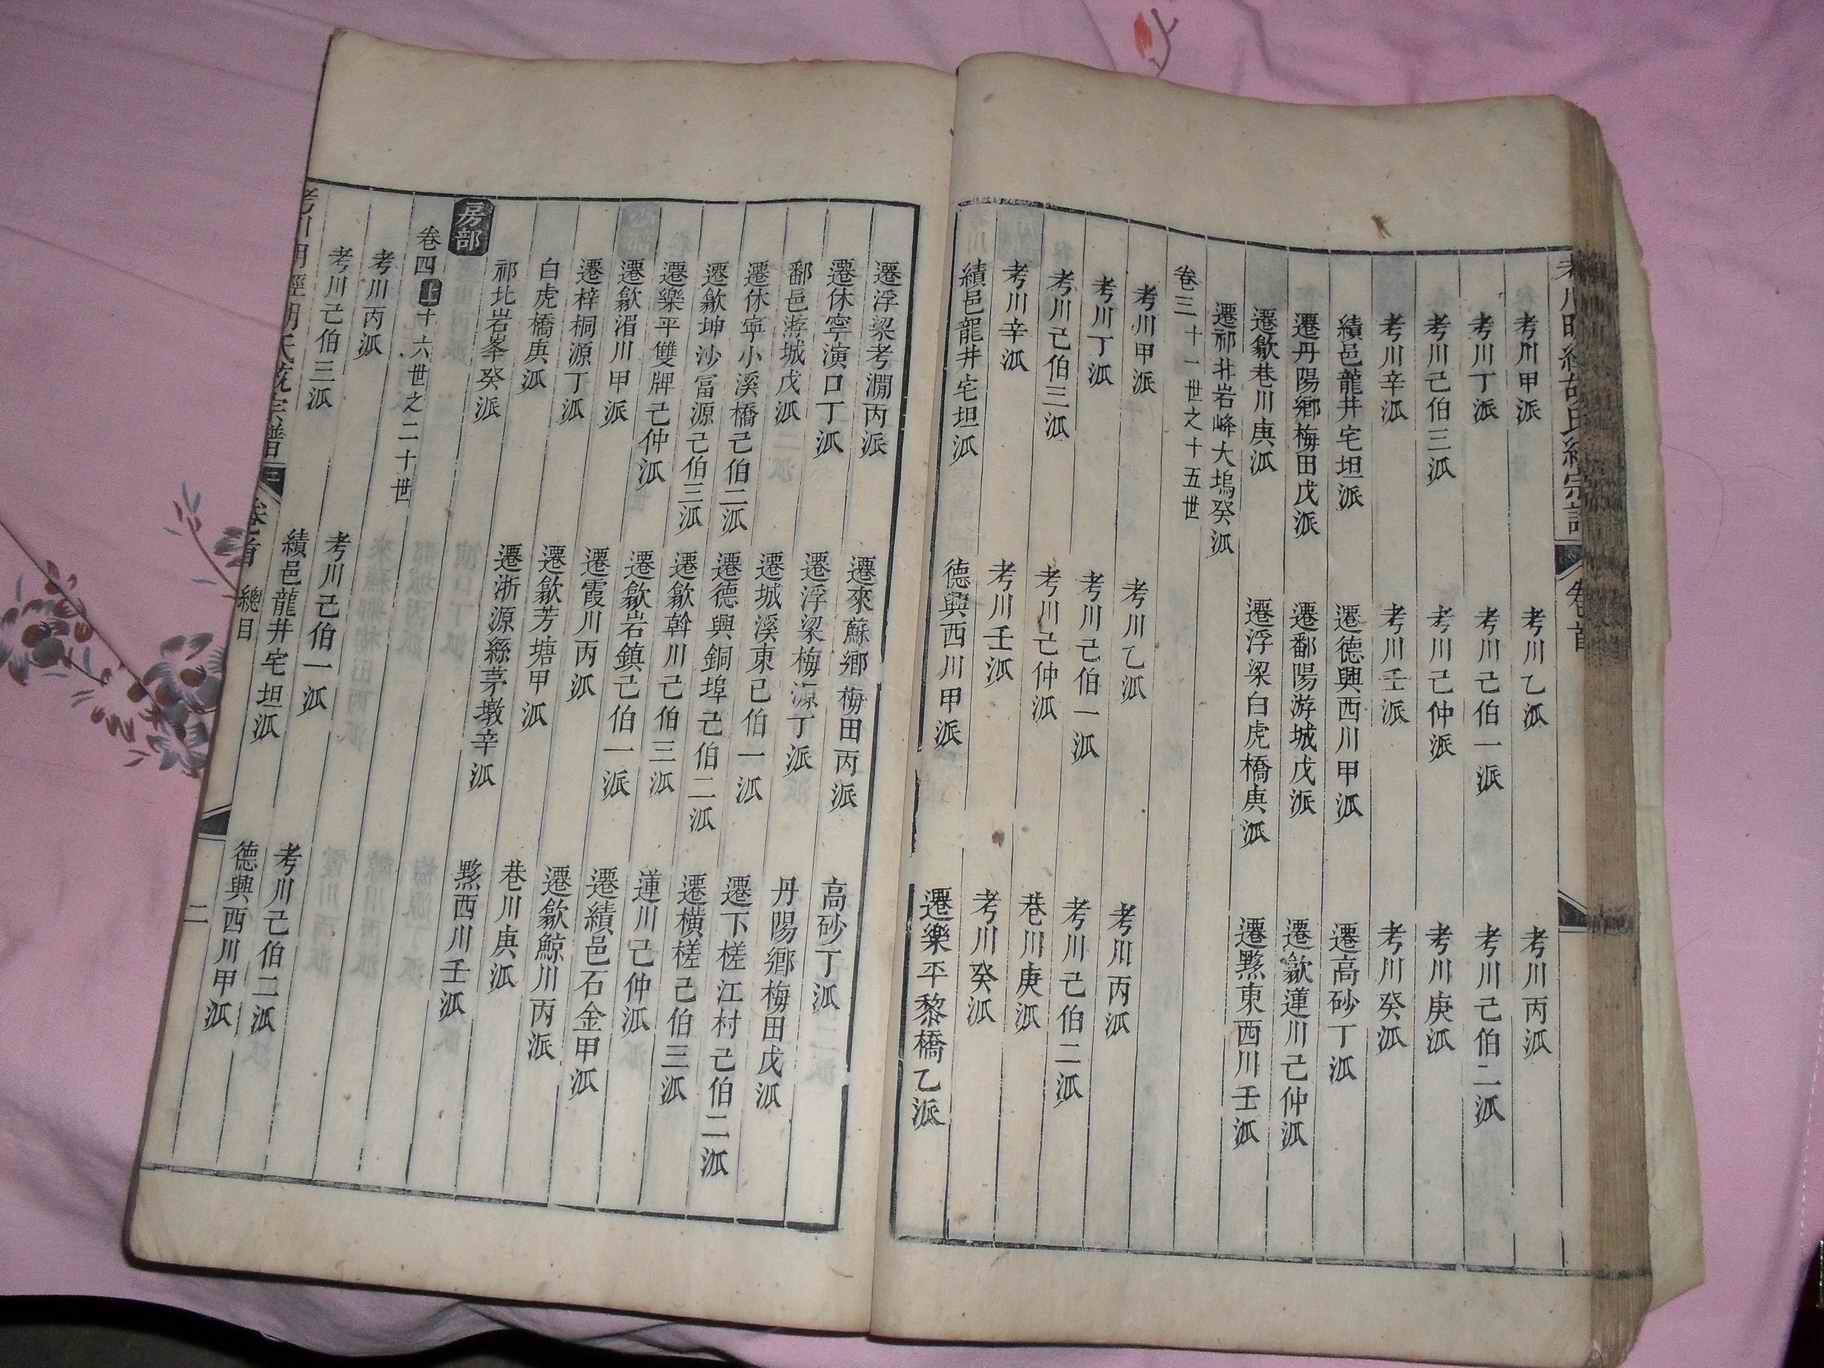 考川明經胡氏統宗譜 卷首
考川甲派 考川乙派 考川丙派
考川丁派 考川己伯一派 考川己伯二派
考川己伯三派 考川己仲派 考川庚派
考川辛派 考川壬派 考川癸派
績邑龍井宅坦派 遷德興西川甲派 遷高砂丁派
遷丹陽鄉梅田戊派 遷鄱陽游城戊派 遷歙蓮川己仲派
遷歙巷川庚派 遷浮梁白虎橋庚派 遷黟東西川壬派
遷祁北岩峰大塢癸派
卷三十一世之十五世
考川甲派 考川乙派 考川丙派
考川丁派 考川己伯一派 考川己伯二派
考川己伯三派 考川己仲派 巷川庚派
考川辛派 考川壬派 考川癸派
績邑龍井宅坦派 德興西川甲派 遷樂平黎橋乙派
遷浮梁考澗丙派 遷來蘇鄉梅田丙派 高砂丁派
遷休寧演口丁派 遷浮梁梅源丁派 丹陽鄉梅田戊派
鄱邑游城戊派 遷城溪東己伯一派 遷下槎江村己伯二派
遷休寧小溪橋己伯二派 遷德興銅埠己伯二派 遷橫槎己伯三派
遷歙坤沙富源己伯三派 遷歙斡川己伯三派 蓮川己仲派
遷樂平雙牌己仲派 遷歙岩鎮己伯一派 遷績邑石金甲派
遷歙湄川甲派 遷霞川丙派 遷歙鯨川丙派
遷梓桐源丁派 遷歙芳塘甲派 巷川庚派
白虎橋庚派 遷浙源綵茅墩辛派 黟西川壬派
祁北岩峯癸派
房部
卷四上十六世之二十世
考川丙派 考川己伯一派 考川己伯二派
考川己伯三派 績邑龍井宅坦派 德興西川甲派
考川明經胡氏統宗譜 卷首 總目 二